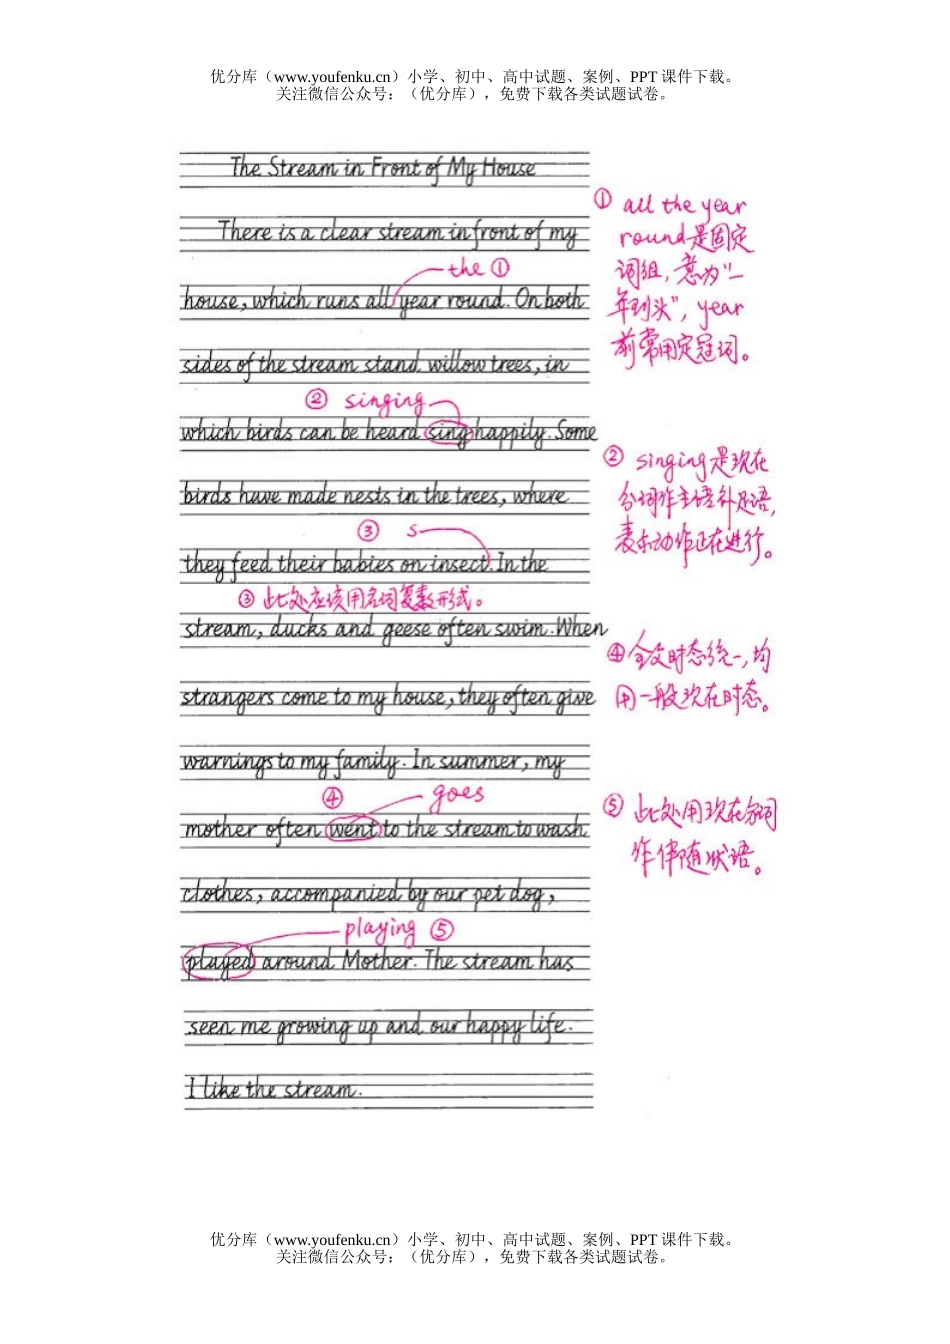 优分库（www.youfenku.cn）小学、初中、高中试题、案例、PPT 课件下载。
关注微信公众号：（优分库），免费下载各类试题试卷。
The Stream in Front of My House
① all the year
round是固定
词组，意为"一
年到头"，year
前常用定冠词。
There is a clear stream in front of my
the ①
house, which runs all year round. On both
sides of the stream stand willow trees, in
② singing
which birds can be heard sing happily. Some
② singing是现在
分词作主语补足语，
表示动作正在进行。
birds have made nests in the trees, where
③ s
they feed their babies on insect. In the
③ 此处应该用名词复数形式。
stream, ducks and geese often swim. When
④ 全文时态统一，均
用一般现在时态。
strangers come to my house, they often give
warnings to my family. In summer, my
④ goes
mother often went to the stream to wash
⑤ 此处用现在分词
作伴随状语。
clothes, accompanied by our pet dog,
playing ⑤
played around Mother. The stream has
seen me growing up and our happy life.
I like the stream.
优分库（www.youfenku.cn）小学、初中、高中试题、案例、PPT 课件下载。
关注微信公众号：（优分库），免费下载各类试题试卷。